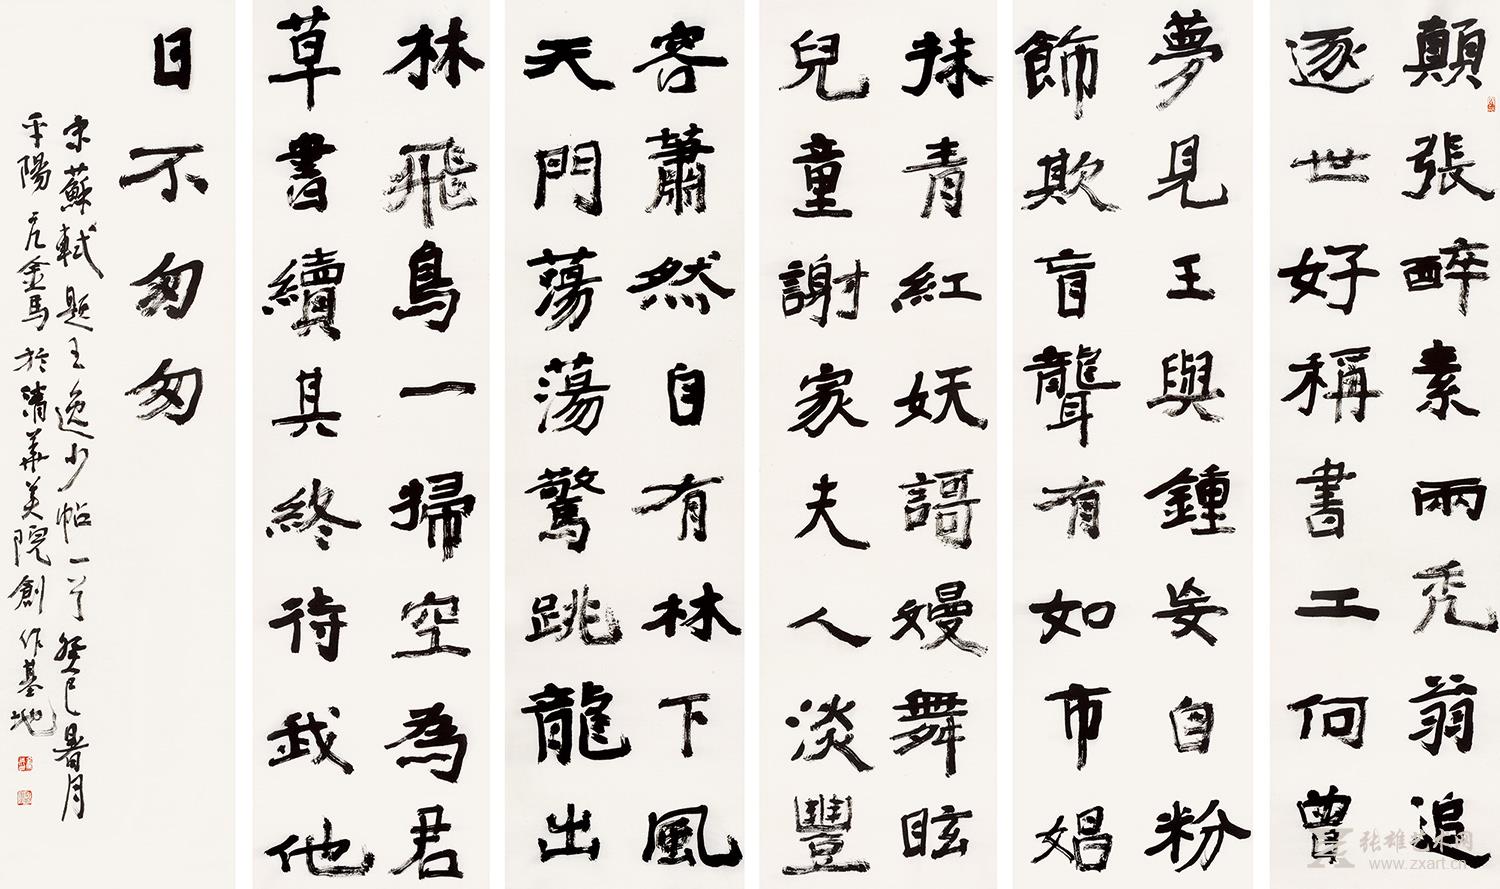 顛張醉素兩禿翁追
逐世好稱書工何曾
夢見王與鍾妄自粉
飾欺盲聾有如市娼
抹青紅妖謌嫚舞眩
兒童謝家夫人淡豐
容蕭然自有林下風
天門蕩蕩驚跳龍出
林飛鳥一掃空為君
草書續其終待我他
日不匆匆
宋蘇軾題王逸少帖一首癸巳暑月
平陽 金馬於清華美院創作基地
张雄艺术网
www.zxart.cn